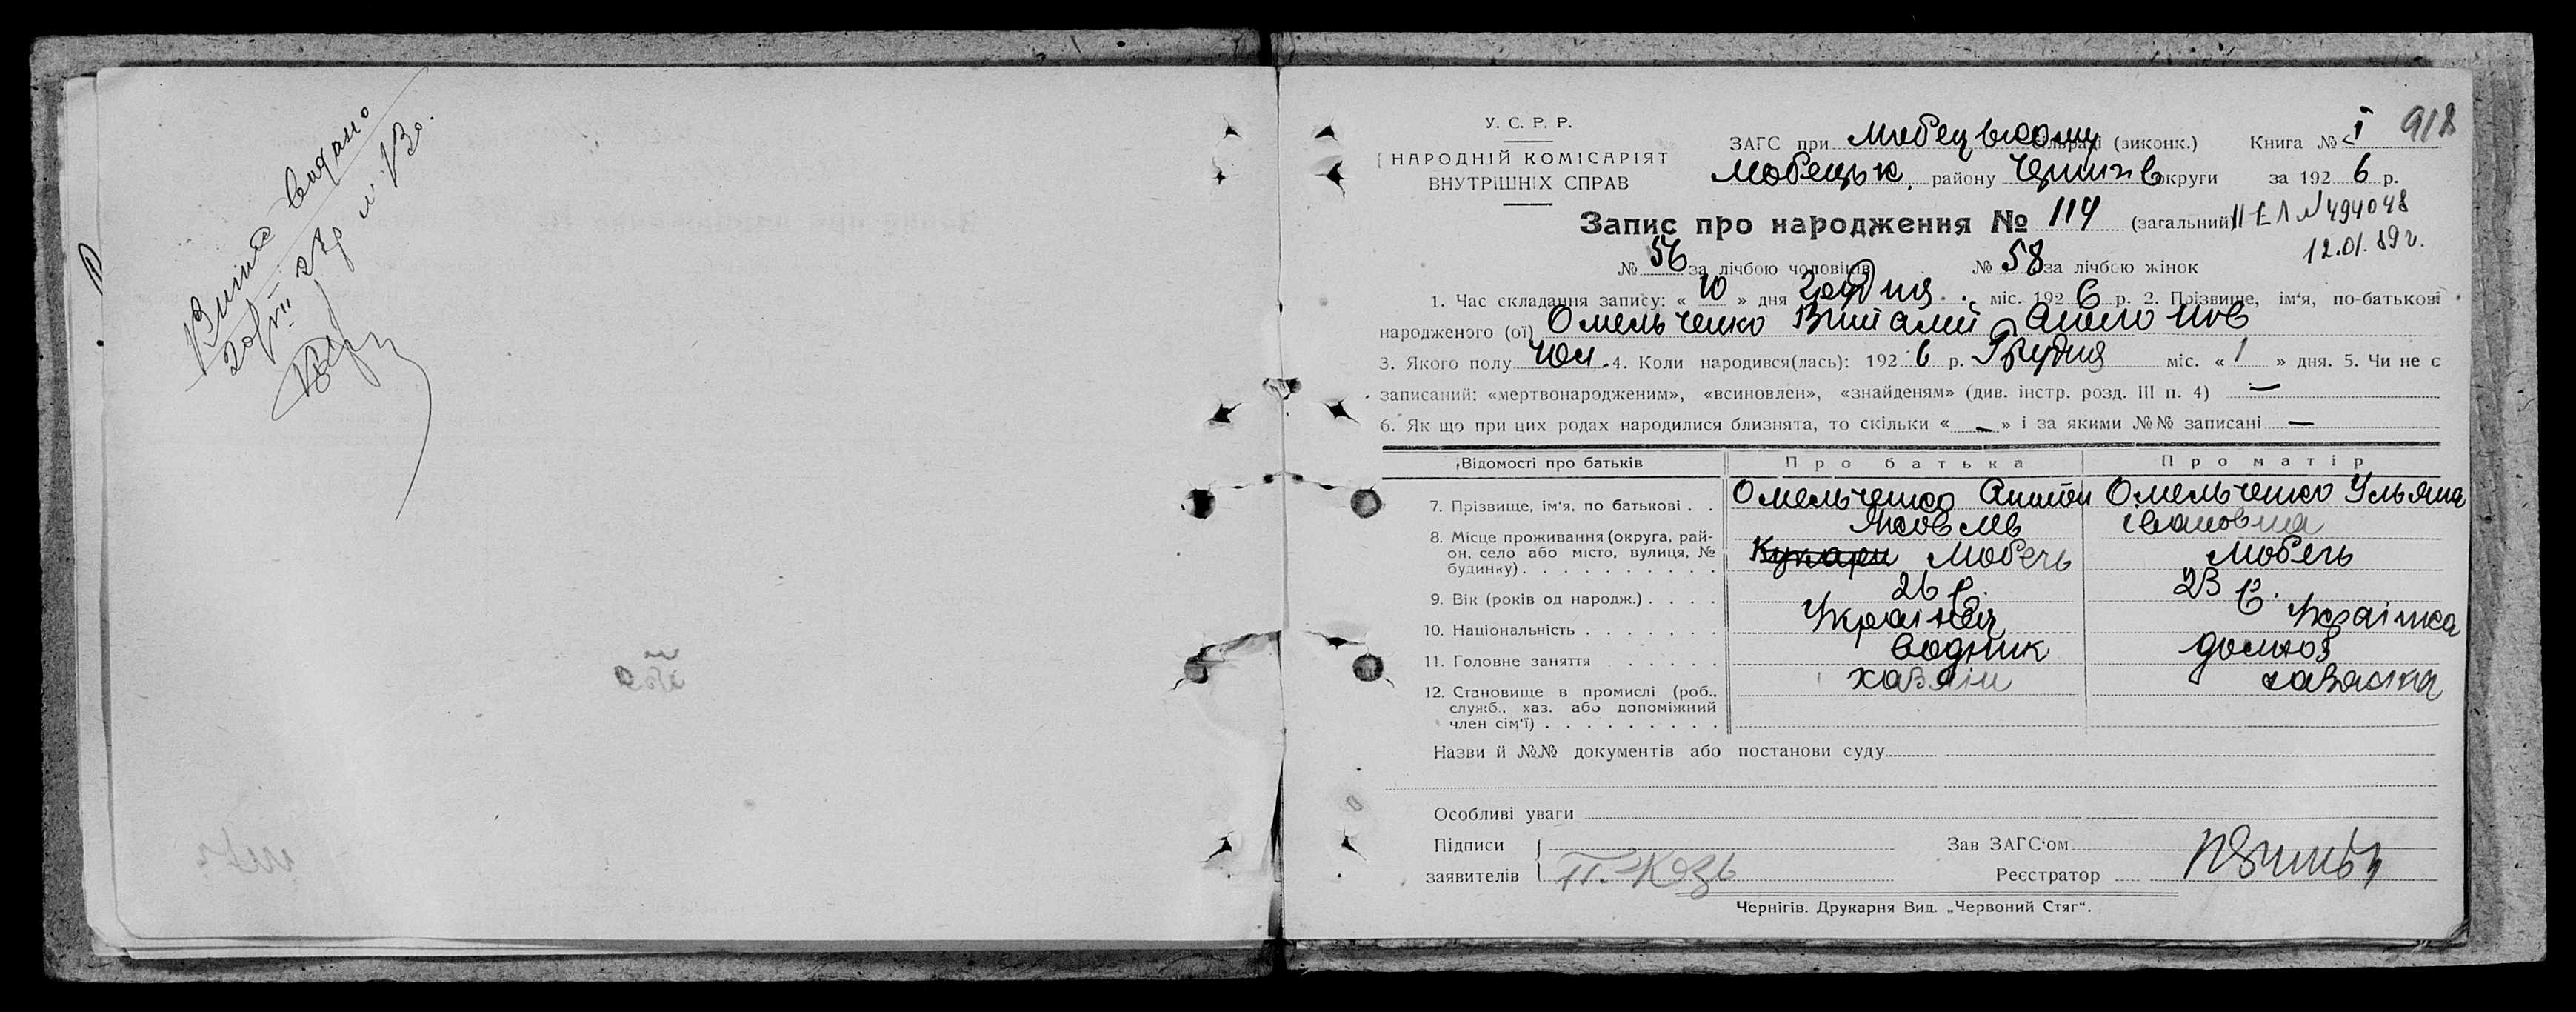 Виписс видано
20/VII 27р
У. С. Р. Р.
НАРОДНІЙ КОМІСАРІЯТ
ВНУТРІШНІХ СПРАВ
ЗАГС при Любецькому сельраді (виконк.) Книга № I 918
Любецьк. району Черниг в округи за 1926 р.
Запис про народження № 114 (загальний) II ЕЛ N 494048
12.01.89 г.
№ 56 за лічбою чоловіків № 58 за лічбою жінок
1. Час складання запису: « 10 » дня Грудня міс. 1926 р. 2. Прізвище, ім'я, по-батькові
народженого (ої) Омельченко Виталий Антонов
3. Якого полу чол. 4. Коли народився(лась): 1926 р. Грудня міс. « 1 » дня. 5. Чи не є
записаний: «мертвонародженим», «всиновлен», «знайденям» (див. інстр. розд. III п. 4) —
6. Як що при цих родах народилися близнята, то скільки « — » і за якими №№ записані —
Відомості про батьків Про батька Про матір
7. Прізвище, ім'я, по батькові . . Омельченко Антон Омельченко Ульяна
Яковлев івановна
8. Місце проживання (округа, рай-
он, село або місто, вулиця, №
будинку) . . . . . . . . . . Любечь Любечь
9. Вік (років од народж.) . . . . 26 р. 23 р.
10. Національність . . . . . . . Українец Українка
11. Головне заняття . . . . . . водник домхоз
12. Становище в промислі (роб.,
служб., хаз. або допоміжний
член сім'ї) . . . . . . . . . хазяін хазяйка
Назви й №№ документів або постанови суду
Особливі уваги
Підписи
заявителів П. Козь
Зав ЗАГС'ом
Реєстратор
Чернігів. Друкарня Вид. „Червоний Стяг".